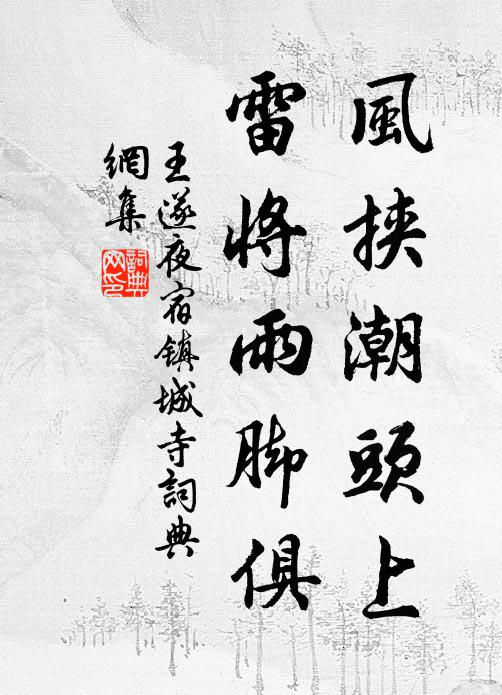 風挟潮頭上
雷將雨脚俱
王遂夜宿鎮城寺詞典
網集
詞典
网印